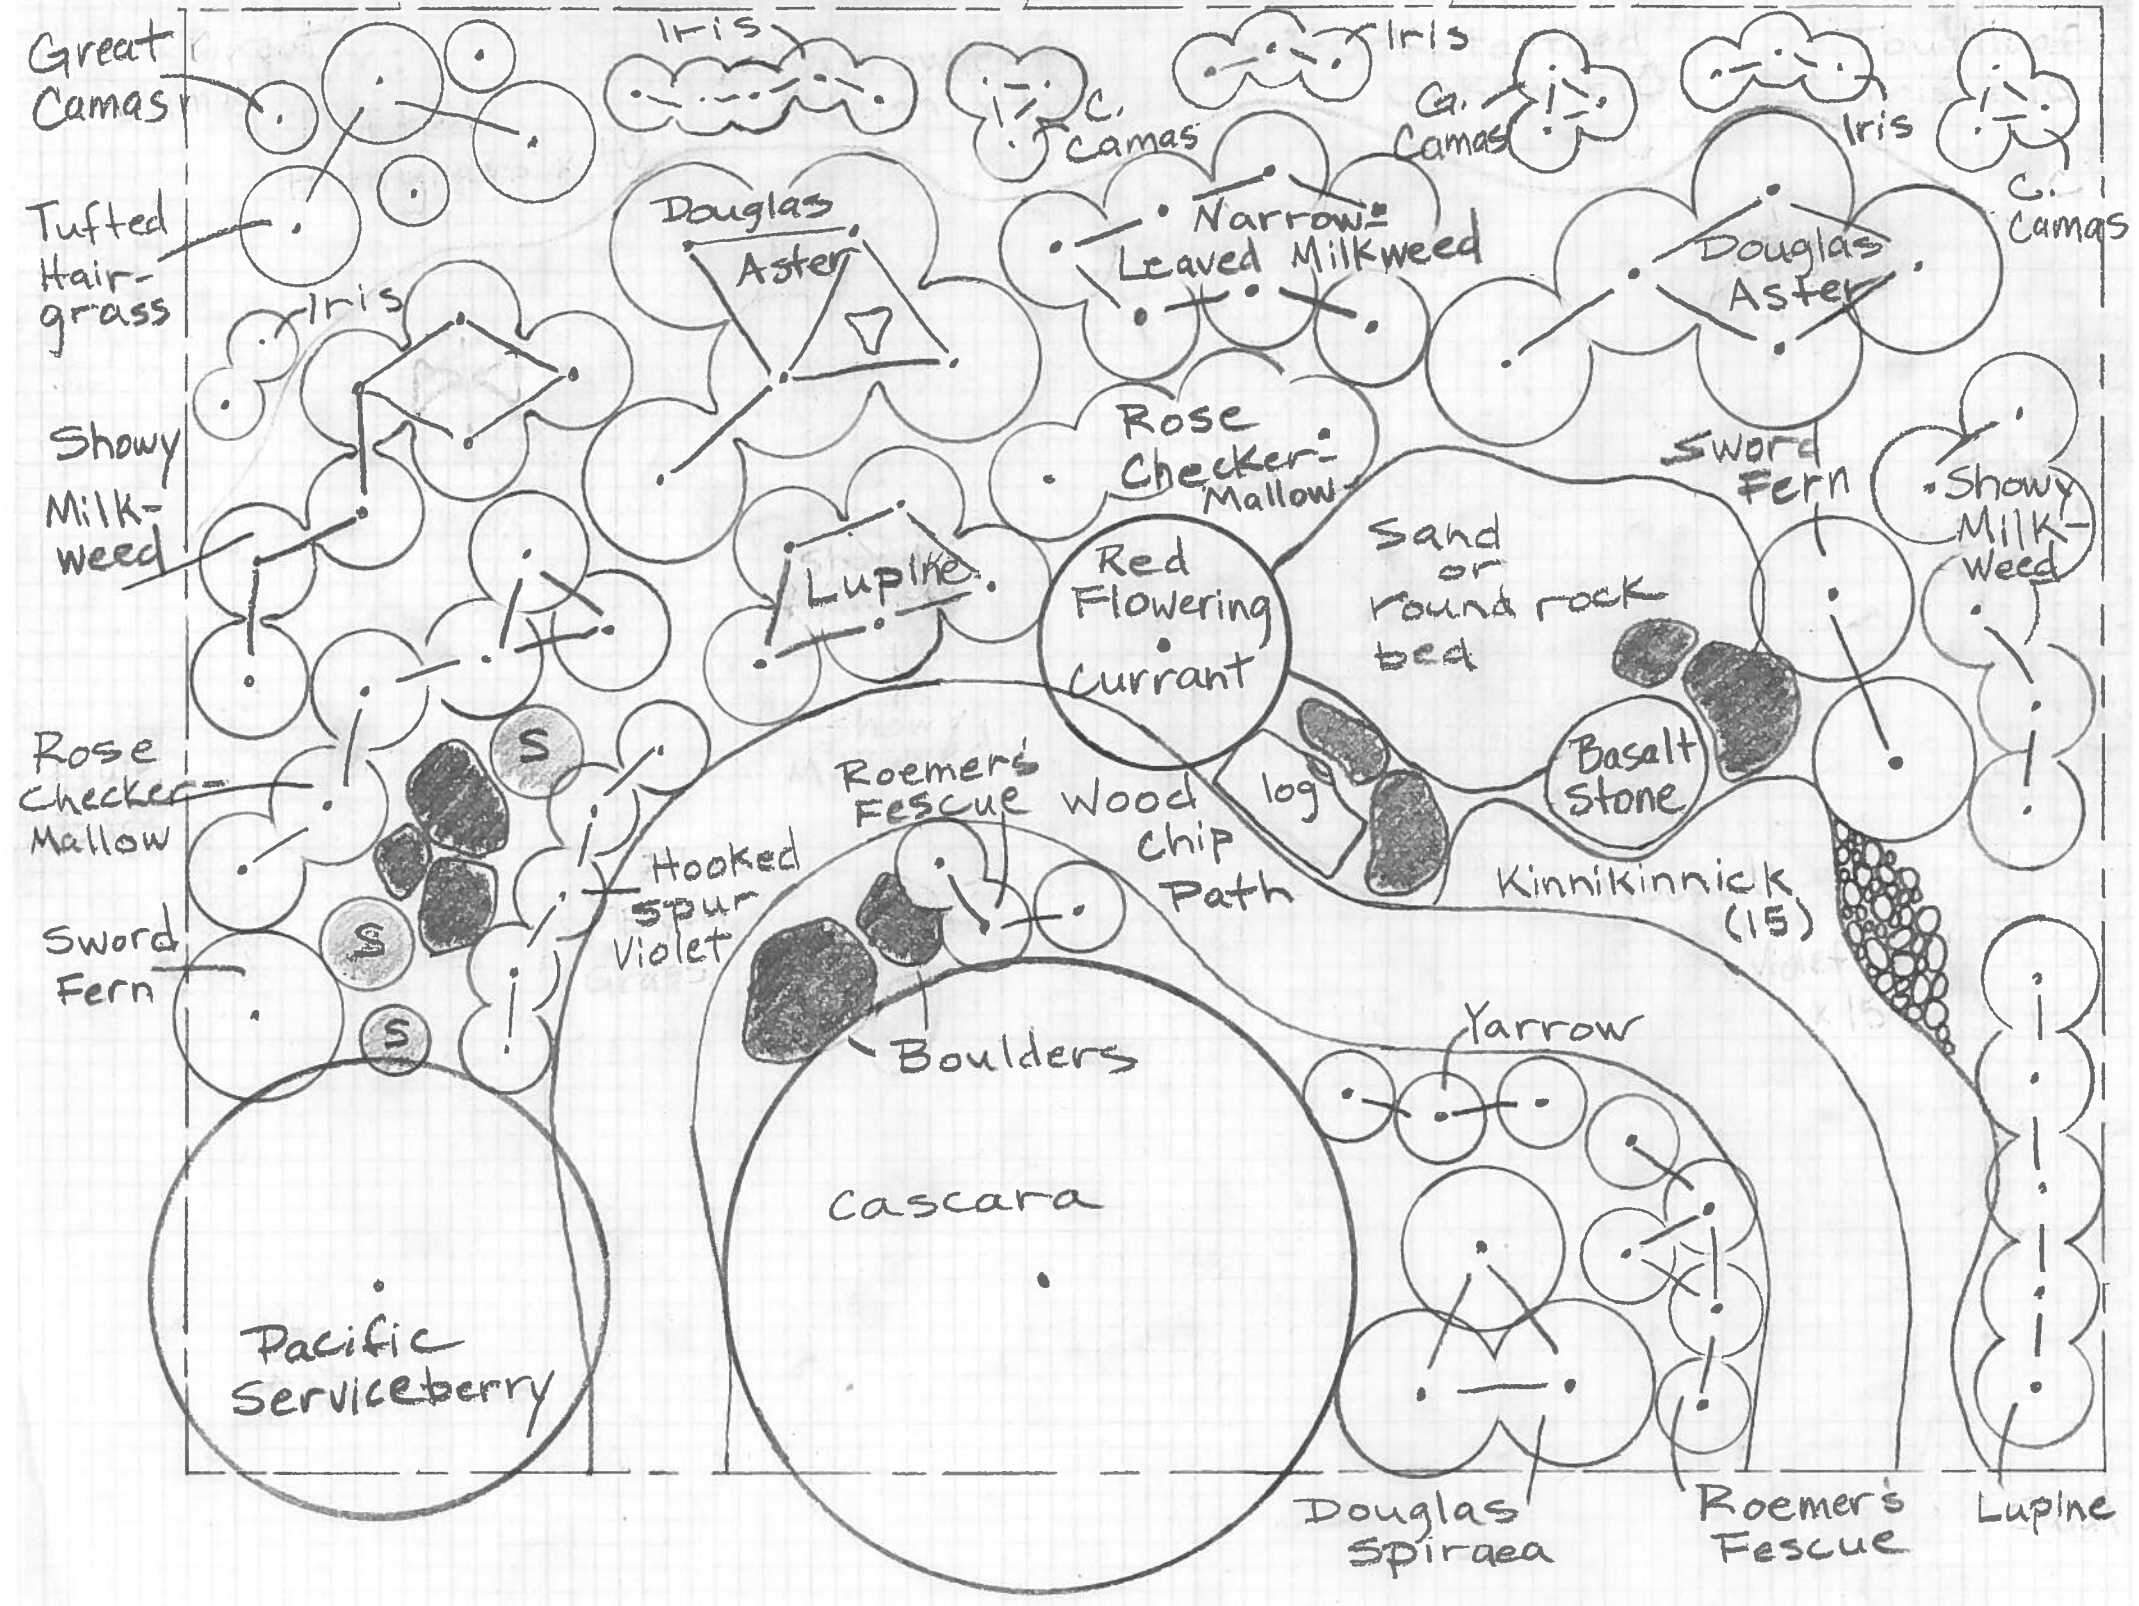 Great
Camas
Iris
C.
Camas
Iris
G.
Camas
Iris
C.
Camas
Tufted
Hair-
grass
Iris
Douglas
Aster
Narrow-
Leaved Milkweed
Douglas
Aster
Showy
Milk-
weed
Rose
Checker-
Mallow
Sword
Fern
Showy
Milk-
weed
Lupine
Red
Flowering
Currant
Sand
or
round rock
bed
Rose
Checker-
Mallow
S
Roemer's
Fescue
Wood
Chip
Path
log
Basalt
Stone
Kinnikinnick
(15)
Hooked
Spur
Violet
Sword
Fern
S
S
Boulders
Yarrow
Cascara
Pacific
Serviceberry
Douglas
Spiraea
Roemer's
Fescue
Lupine